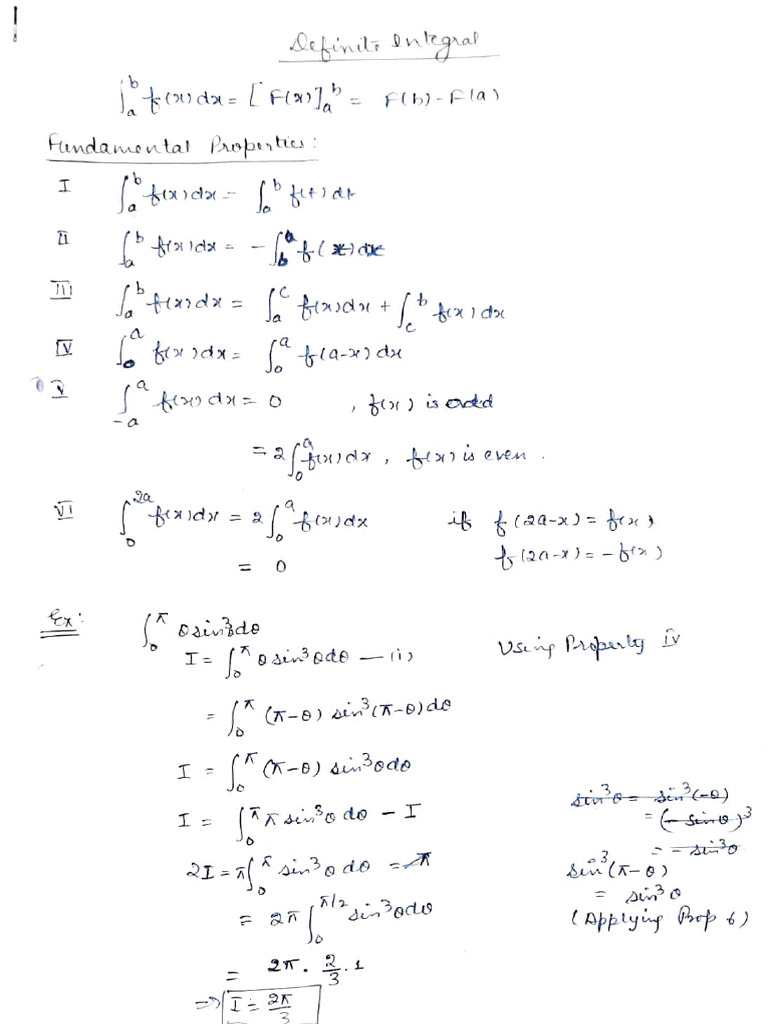 Definite Integral
∫_a^b f(x)dx = [F(x)]_a^b = F(b)-F(a)
Fundamental Properties:
I ∫_a^b f(x)dx = ∫_a^b f(t)dt
II ∫_a^b f(x)dx = -∫_b^a f(x)dx
III ∫_a^b f(x)dx = ∫_a^c f(x)dx + ∫_c^b f(x)dx
IV ∫_0^a f(x)dx = ∫_0^a f(a-x)dx
V ∫_{-a}^a f(x)dx = 0 , f(x) is odd
= 2∫_0^a f(x)dx, f(x) is even.
VI ∫_0^{2a} f(x)dx = 2∫_0^a f(x)dx if f(2a-x) = f(x)
= 0 f(2a-x) = -f(x)
Ex: ∫_0^π θsin³dθ
I = ∫_0^π θsin³θdθ —(i) Using Property IV
= ∫_0^π (π-θ) sin³(π-θ)dθ
I = ∫_0^π (π-θ) sin³θdθ
I = ∫_0^π π sin³θdθ - I
2I = π∫_0^π sin³θdθ = π
= 2π∫_0^{π/2} sin³θdθ
= 2π · 2/3 · 1
⇒ I = 2π/3
sin³θ = sin³(-θ)
= (-sinθ)³
= -sin³θ
sin³(π-θ)
= sin³θ
(Applying Prop 6)